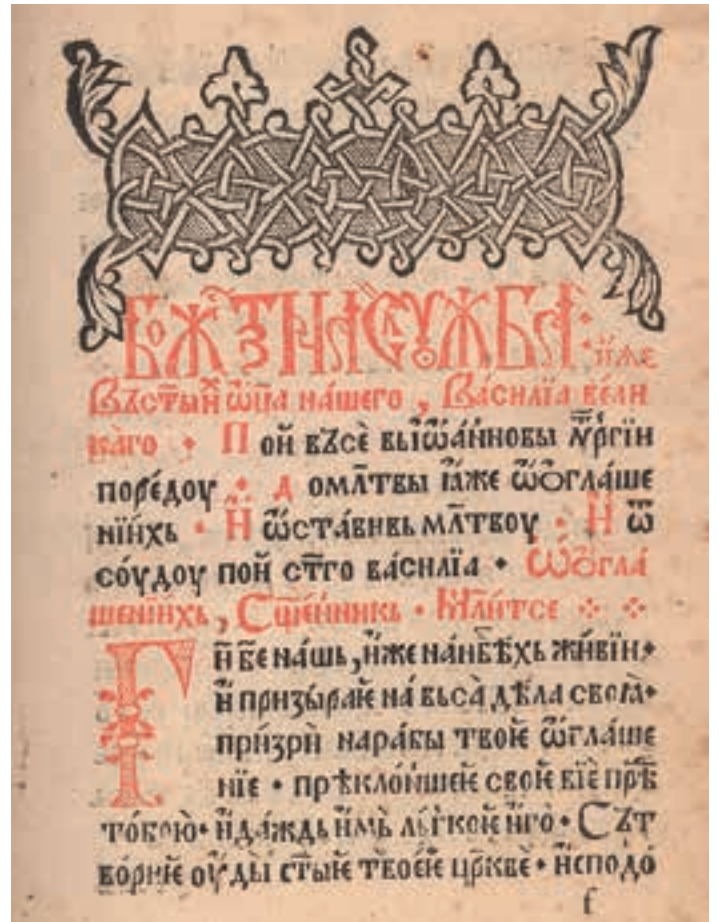 БОЖЕСТВНАꙖ СЛꙊЖБА · и҆́же
Въст҃ы́и ѿц҃а на́шего , Васи́лїа вели
ка́го · Пои҆̀ въсѐ вы҆Іѡ҆а́нновы лѵ҃ргїи
поре́доу · до мл҃твы ꙗ҆́же ѿѻ҆гла́ше
нїи́хь · И ѡ҆ста́вивь мл҃твоу · И ѿ
со́удоу пои҆̀ ст҃го васи́лїа · Ѿѻ҆гла́
шеннїихь, Сщ҃е́нникь · Мл҃и́тсе
Ги҃ бе҃ на́шь , и҆́же на́нб҃ѣхь жи́вїи ·
и҆ призы́раѥ на́ вьса̀ дѣ́ла своꙗ̀ ·
при́зрѝ нара́бы твоѥ ѡ҆гла́ше
нїе · прѣкло́ншеѥ своѥ вїѐ прѣ́
то́бою̀ · и҆да́ждь и҆́мь ль́гкоѥ и҆́го̀ · Сьт
во́риѥ оу҆́ды̀ ст҃ыѥ твое́ѥ цр҃квѐ · и҆спо́до́